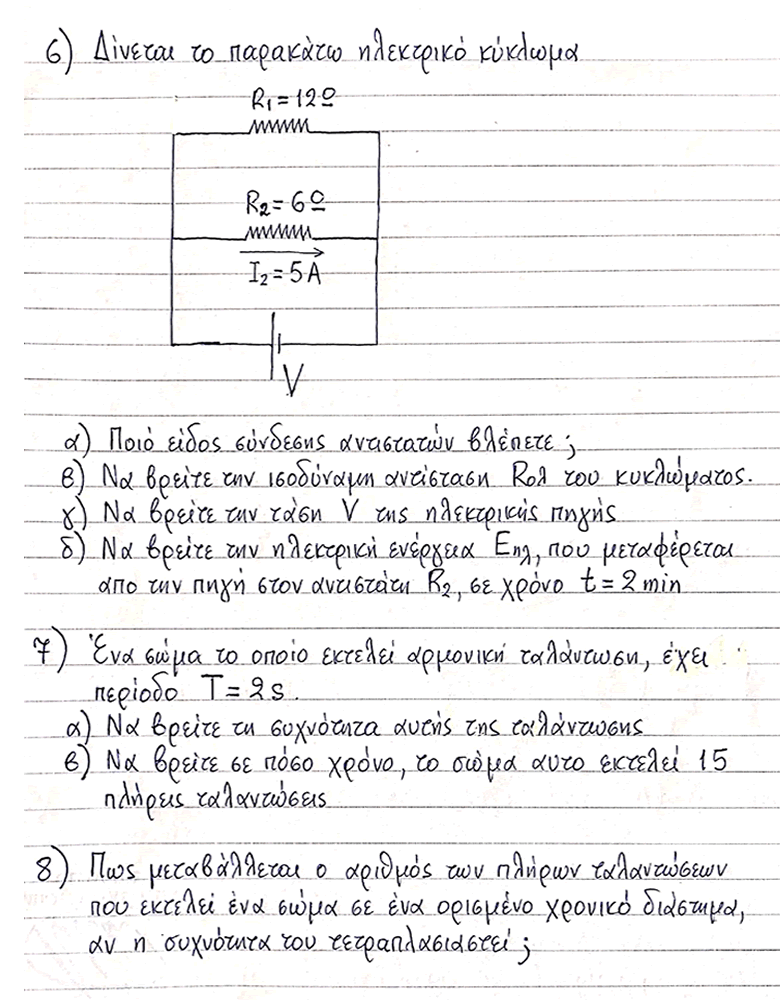 6) Δίνεται το παρακάτω ηλεκτρικό κύκλωμα
R₁ = 12Ω
R₂ = 6Ω
I₂ = 5A
V
α) Ποιό είδος σύνδεσης αντιστατών βλέπετε;
β) Να βρείτε την ισοδύναμη αντίσταση Rολ του κυκλώματος.
γ) Να βρείτε την τάση V της ηλεκτρικής πηγής
δ) Να βρείτε την ηλεκτρική ενέργεια Eηλ, που μεταφέρεται
απο την πηγή στον αντιστάτη R₂, σε χρόνο t = 2 min
7) Ένα σώμα το οποίο εκτελεί αρμονική ταλάντωση, έχει
περίοδο T = 2s.
α) Να βρείτε τη συχνότητα αυτής της ταλάντωσης
β) Να βρείτε σε πόσο χρόνο, το σώμα αυτο εκτελεί 15
πλήρεις ταλαντώσεις
8) Πως μεταβάλλεται ο αριθμός των πλήρων ταλαντώσεων
που εκτελεί ένα σώμα σε ένα ορισμένο χρονικό διάστημα,
αν η συχνότητα του τετραπλασιαστεί;